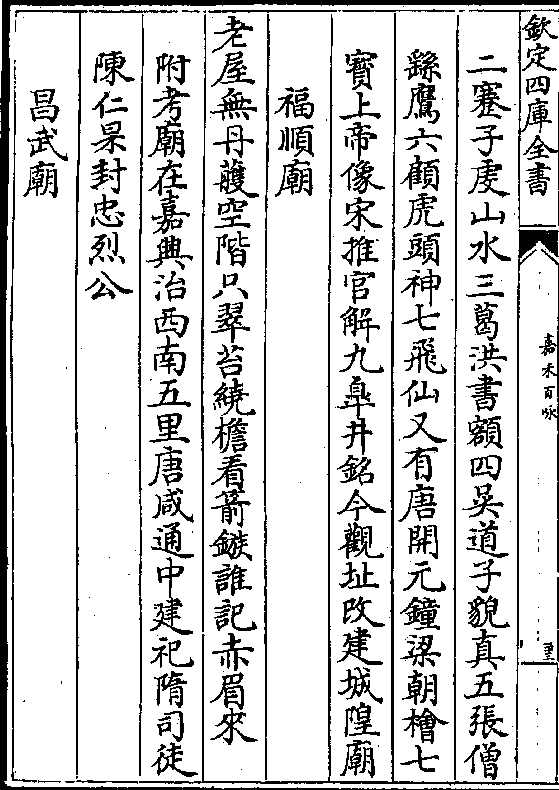 欽定四庫全書
嘉禾百咏
二蹇子虔山水三葛洪書額四吳道子貌真五張僧
繇鷹六顧虎頭神七飛仙又有唐開元鐘梁朝檜七
寳上帝像宋推官解九臯井銘今觀址改建城隍廟
福順廟
老屋無丹雘空階只翠苔繞檐看箭鏃誰記赤眉來
附考廟在嘉興治西南五里唐咸通中建祀隋司徒
陳仁杲封忠烈公
昌武廟